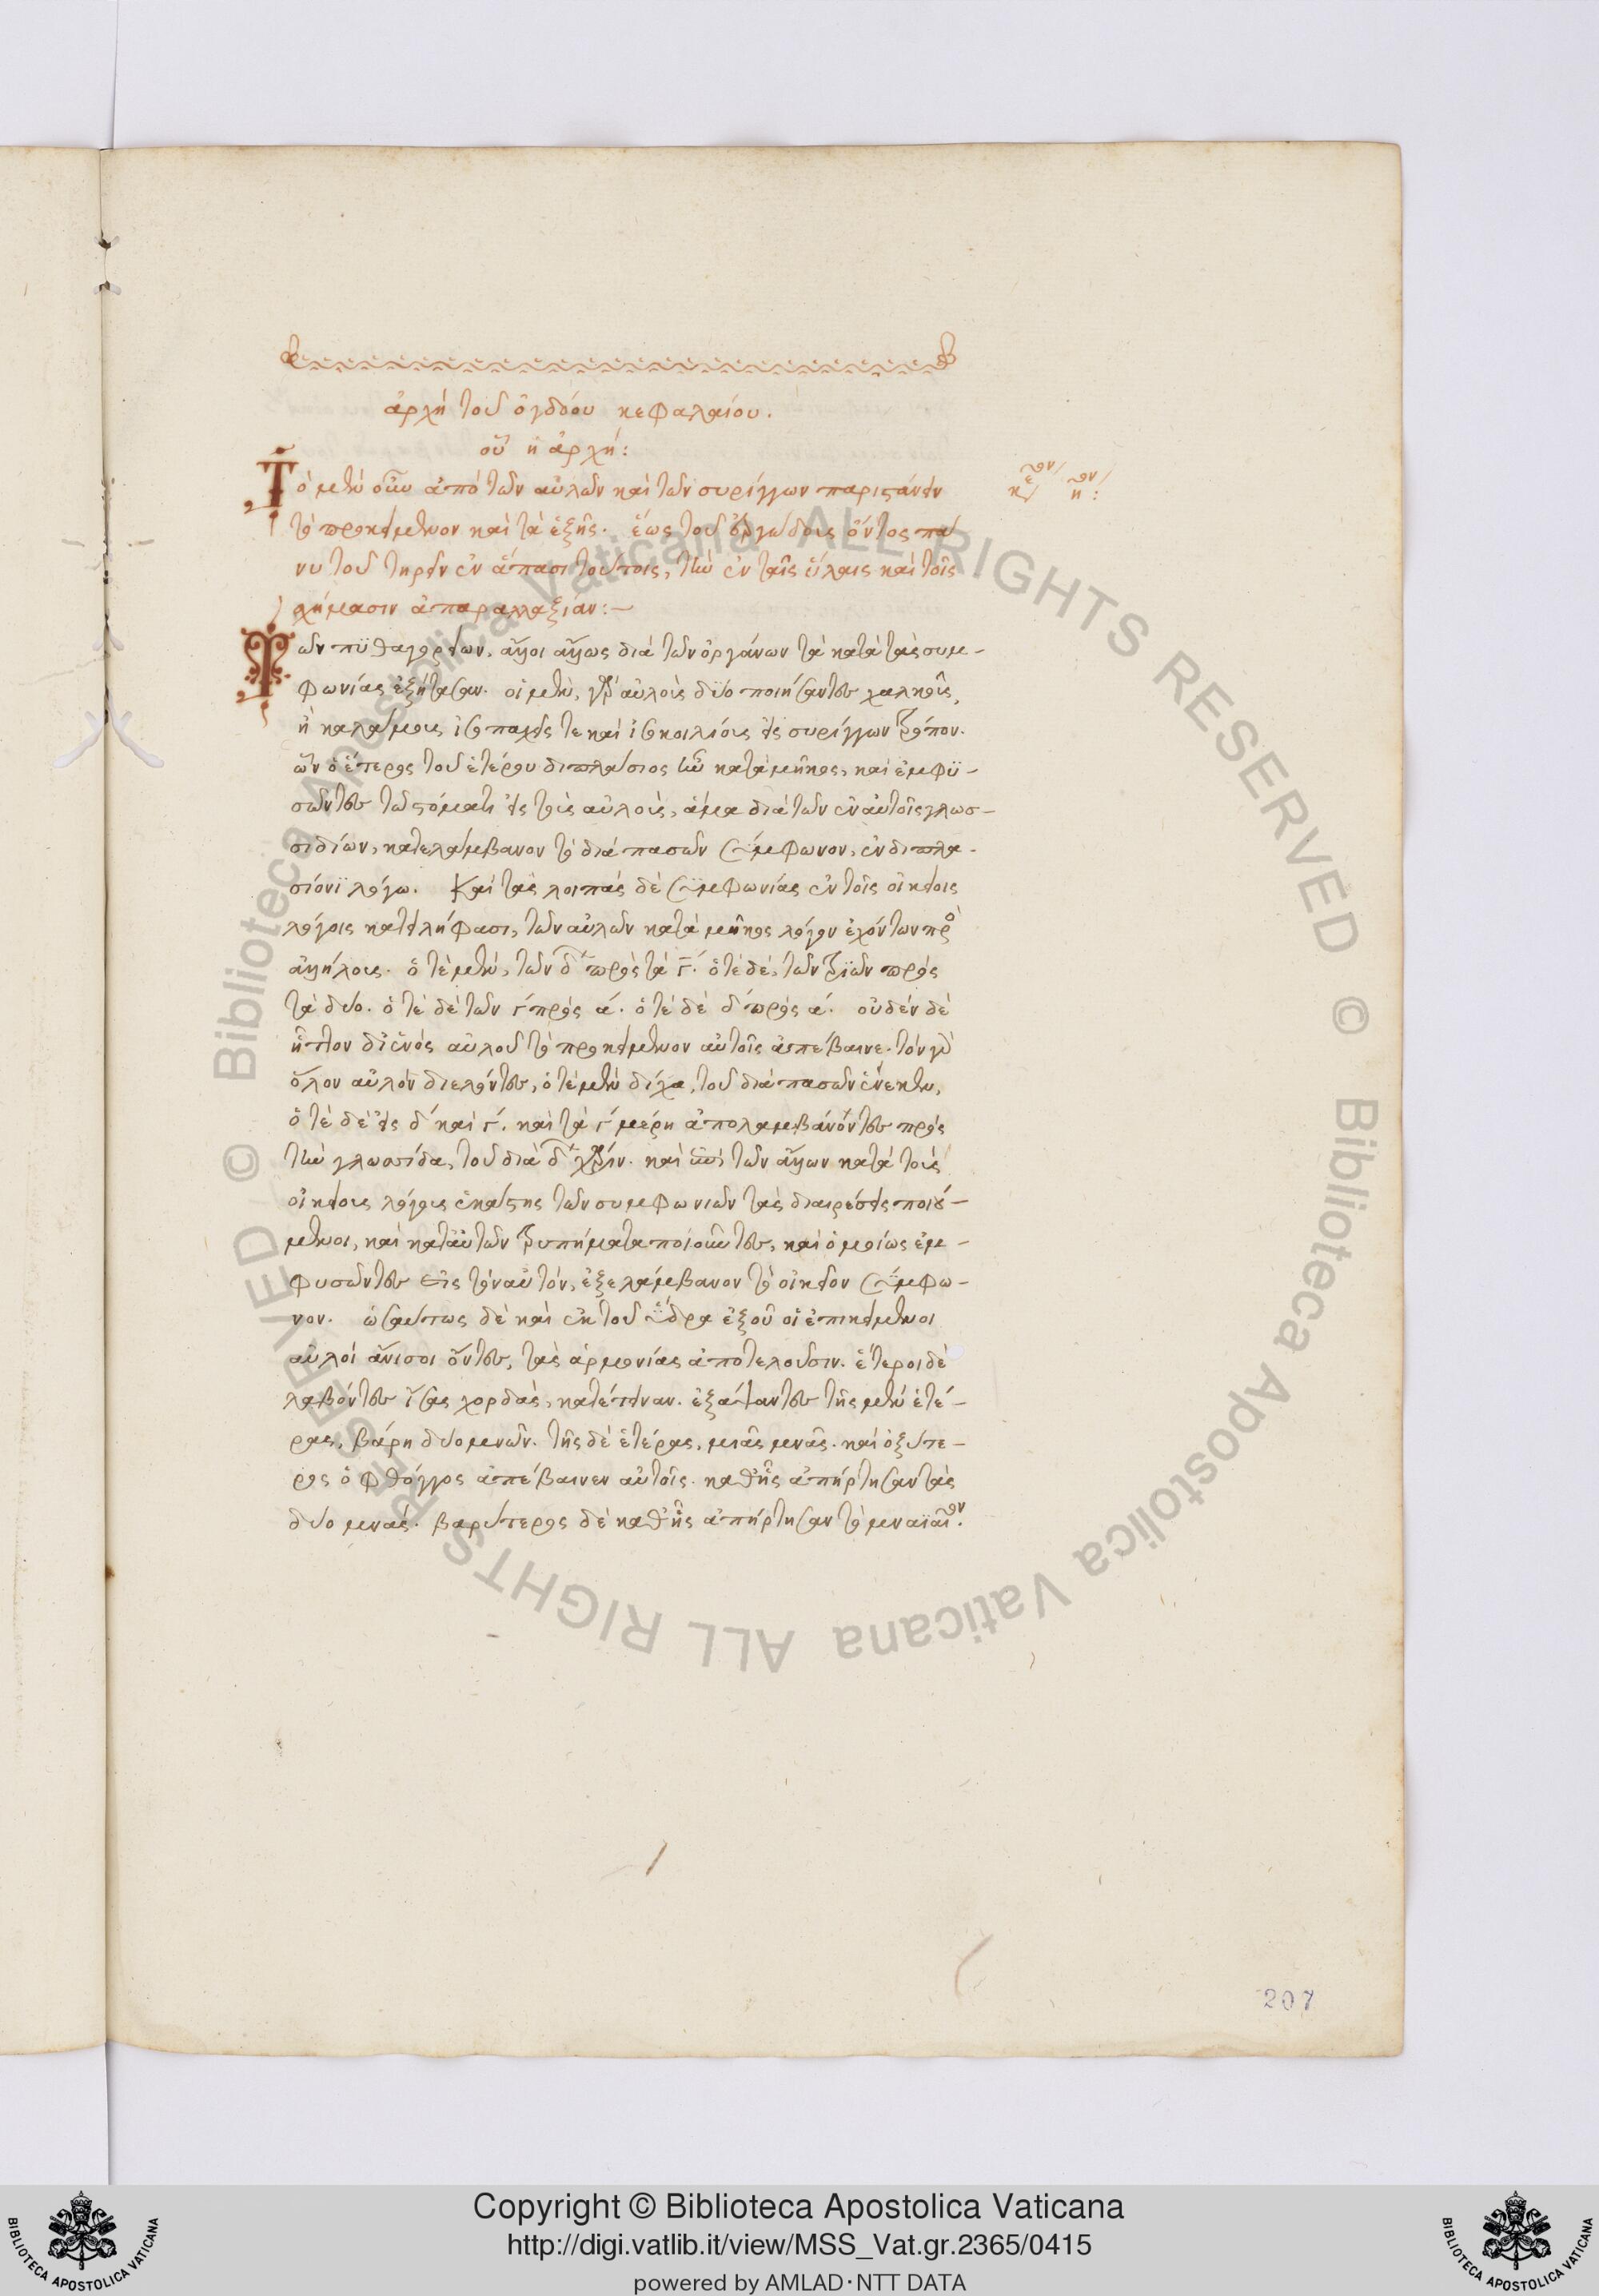 ἀρχὴ τοῦ ὀγδόου κεφαλαίου.
οὗ ἡ ἀρχή:
Τὸ μὲν οὖν ἀπὸ τῶν αὐλῶν καὶ τῶν συρίγγων παριστάνειν
τὸ προκείμενον καὶ τὰ ἑξῆς. ἕως τοῦ ὄντος πά
νυ τοῦ τηρεῖν ἐν ἅπασι τούτοις, τὴν ἐν ταῖς ὕλαις καὶ τοῖς
σχήμασιν ἀπαραλλαξίαν:—
Τῶν πυθαγορείων, ἄλλοι ἄλλως διὰ τῶν ὀργάνων τὰ κατὰ τὰς συμ-
φωνίας ἐξήτασαν. οἱ μὲν, γὰρ αὐλοὺς δύο ποιήσαντες χαλκοῦς,
ἢ καλάμους ἰσοπαχεῖς τε καὶ ἰσοκοιλίους εἰς συρίγγων τρόπον.
ὧν ὁ ἕτερος τοῦ ἑτέρου διπλάσιος ἦν κατὰ μῆκος, καὶ ἐμφυ-
σῶντες τῷ στόματι εἰς τοὺς αὐλοὺς, ἅμα διὰ τῶν ἐν αὐτοῖς γλωσ-
σιδίων, κατελάμβανον τὸ διὰ πασῶν σύμφωνον, ἐν διπλα-
σίονι λόγω. Καὶ τὰς λοιπὰς δὲ συμφωνίας ἐν τοῖς οἰκείοις
λόγοις κατειλήφασι, τῶν αὐλῶν κατὰ μῆκος λόγον ἐχόντων πρὸς
ἀλλήλους. ὁτὲ μὲν, τῶν δ πρὸς τὰ γ. ὁτὲ δὲ, τῶν τριῶν πρὸς
τὰ δύο. ὁτὲ δὲ τῶν γ πρὸς α. ὁτὲ δὲ δ πρὸς α. οὐδὲν δὲ
ἧττον δι' ἑνὸς αὐλοῦ τὸ προκείμενον αὐτοῖς ἀπέβαινε. τὸν γὰρ
ὅλον αὐλὸν διελόντες, ὁτὲ μὲν δίχα, τοῦ διὰ πασῶν ἕνεκεν,
ὁτὲ δὲ εἰς δ καὶ γ. καὶ τὰ γ μέρη ἀπολαμβάνοντες πρὸς
τὴν γλωσσίδα, τοῦ διὰ δ χάριν. καὶ ἐπὶ τῶν ἄλλων κατὰ τοὺς
οἰκείους λόγους ἑκάστης τῶν συμφωνιῶν τὰς διαιρέσεις ποιού-
μενοι, καὶ κατ' αὐτῶν τρυπήματα ποιοῦντες, καὶ ὁμοίως ἐμ-
φυσῶντες εἰς τὸν αὐτόν, ἐξελάμβανον τὸ οἰκεῖον σύμφω-
νον. ὡσαύτως δὲ καὶ ἐκ τοῦ ὕδρα ἐξ οὗ οἱ ἐπικείμενοι
αὐλοὶ ἄνισοι ὄντες, τὰς ἁρμονίας ἀποτελοῦσιν. ἕτεροι δὲ
λαβόντες ἴσας χορδὰς, κατέτειναν. ἐξάψαντες τῆς μὲν ἑτέ-
ρας, βάρη δύο μνῶν. τῆς δὲ ἑτέρας, μιᾶς μνᾶς. καὶ ὀξύτε-
ρος ὁ φθόγγος ἀπέβαινεν αὐτοῖς. καθ' ἧς ἀπήρτησαν τὰς
δύο μνᾶς. βαρύτερος δὲ καθ' ἧς ἀπήρτησαν τὸ μναϊαῖον.
207
© Biblioteca Apostolica Vaticana ALL RIGHTS RESERVED © Biblioteca Apostolica Vaticana ALL RIGHTS RESERVED
Copyright © Biblioteca Apostolica Vaticana
http://digi.vatlib.it/view/MSS_Vat.gr.2365/0415
powered by AMLAD·NTT DATA
BIBLIOTECA APOSTOLICA VATICANA
BIBLIOTECA APOSTOLICA VATICANA